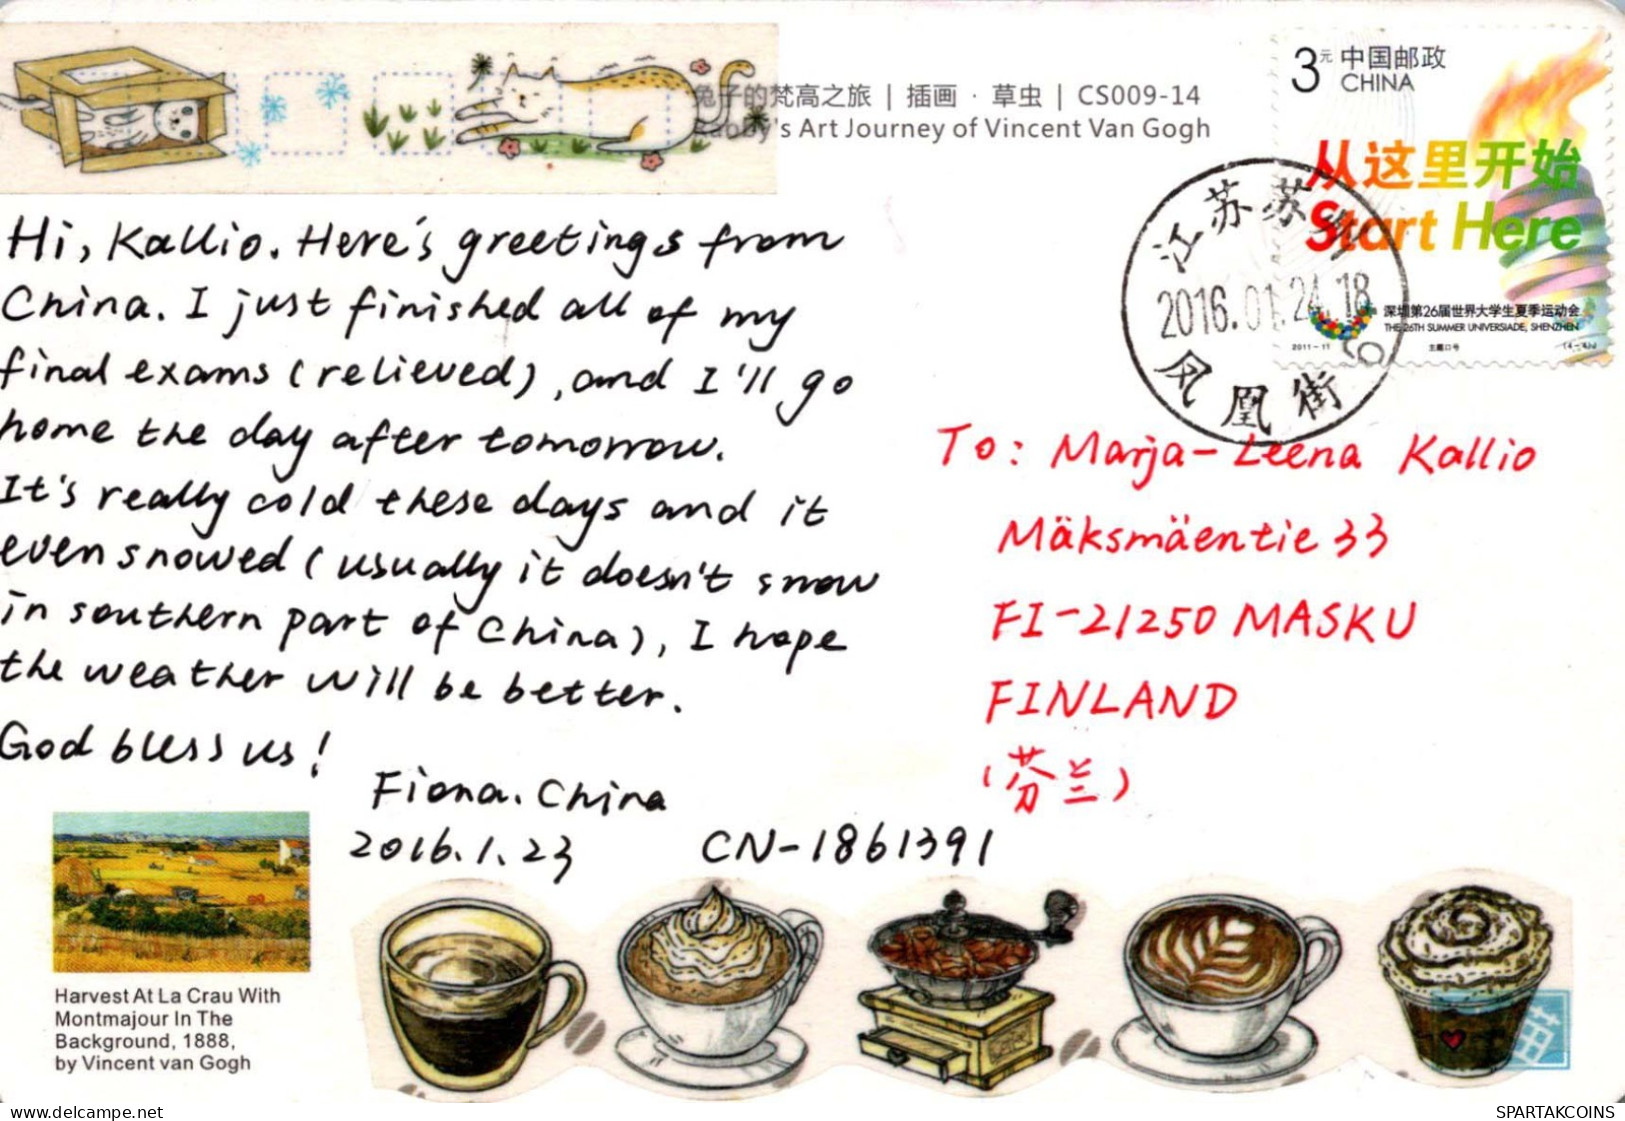 兔子的梵高之旅 | 插画 · 草虫 | CS009-14
Rabby's Art Journey of Vincent Van Gogh
3元 中国邮政
CHINA
从这里开始
Start Here
深圳第26届世界大学生夏季运动会
THE 26TH SUMMER UNIVERSIADE, SHENZHEN
2011-11 主题口号 (4-4)J
江苏苏
2016.01.24.18
凤凰街
Hi, Kallio. Here's greetings from
China. I just finished all of my
final exams (relieved), and I'll go
home the day after tomorrow.
It's really cold these days and it
even snowed (usually it doesn't snow
in southern part of China), I hope
the weather will be better.
God bless us!
Fiona. China
2016.1.23
CN-1861391
To: Marja-Leena Kallio
Mäksmäentie 33
FI-21250 MASKU
FINLAND
(芬兰)
Harvest At La Crau With
Montmajour In The
Background, 1888,
by Vincent van Gogh
www.delcampe.net
SPARTAKCOINS